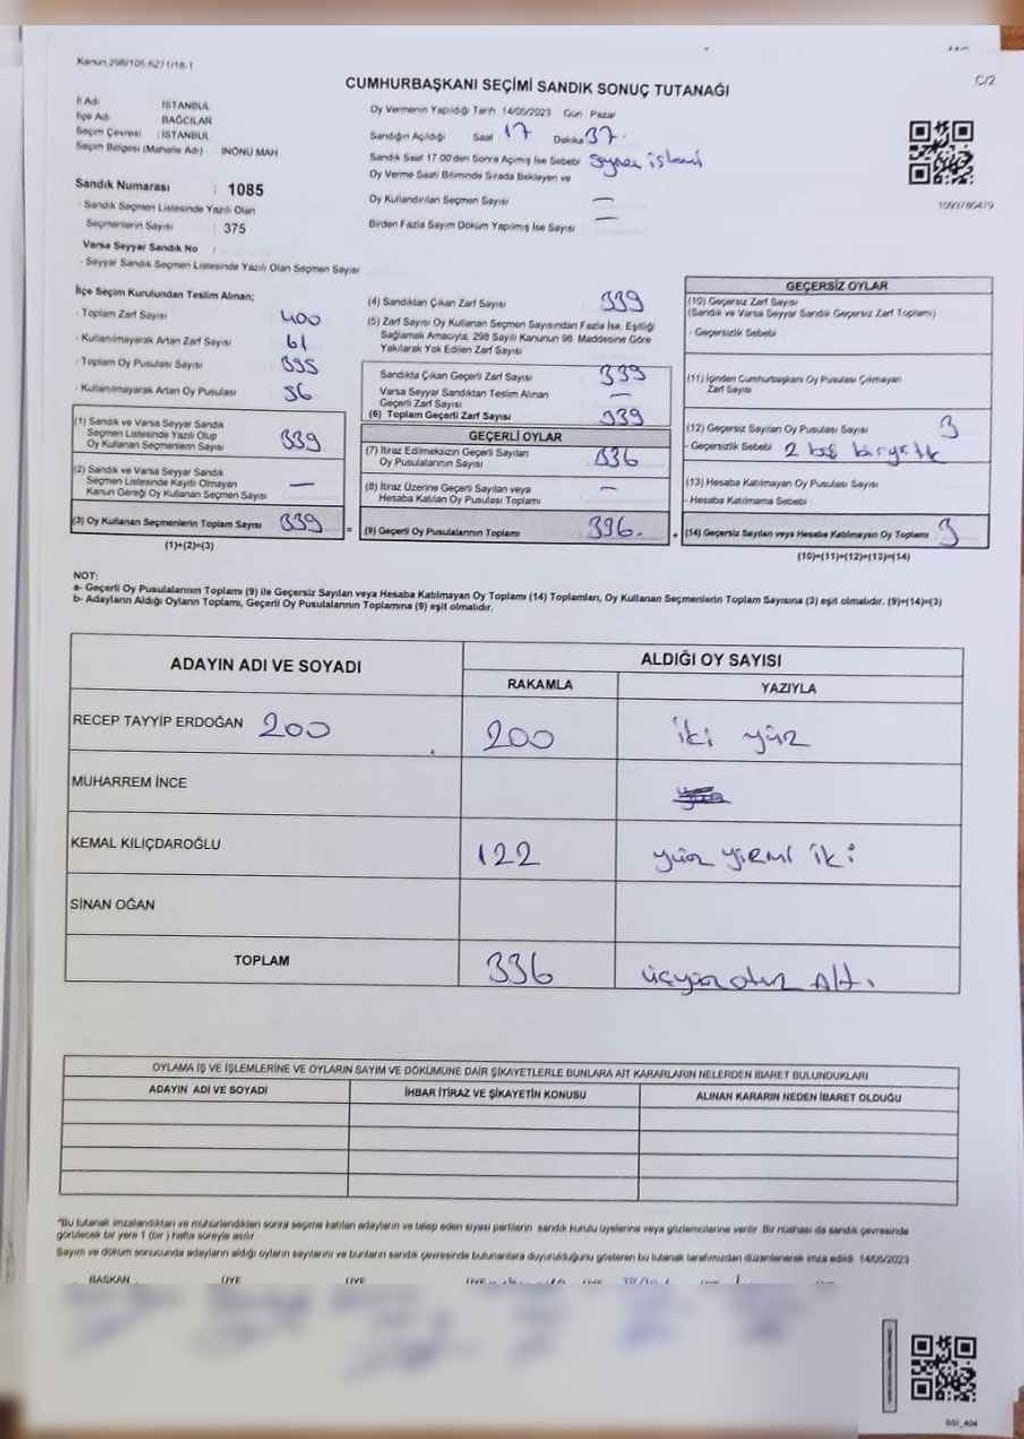 Kanun 298/105-6271/16-1
C/2
CUMHURBAŞKANI SEÇİMİ SANDIK SONUÇ TUTANAĞI
İl Adı : İSTANBUL
İlçe Adı BAĞCILAR
Seçim Çevresi : İSTANBUL
Seçim Bölgesi (Mahalle Adı) : İNÖNÜ MAH
Sandık Numarası : 1085
- Sandık Seçmen Listesinde Yazılı Olan
Seçmenlerin Sayısı : 375
Varsa Seyyar Sandık No :
- Seyyar Sandık Seçmen Listesinde Yazılı Olan Seçmen Sayısı
Oy Vermenin Yapıldığı Tarih 14/05/2023 Gün Pazar
Sandığın Açıldığı Saat 17 Dakika 37
Sandık Saat 17.00'den Sonra Açılmış İse Sebebi
Oy Verme Saati Bitiminde Sırada Bekleyen ve
Oy Kullandırılan Seçmen Sayısı —
Birden Fazla Sayım Döküm Yapılmış İse Sayısı —
İlçe Seçim Kurulundan Teslim Alınan;
- Toplam Zarf Sayısı 400
- Kullanılmayarak Artan Zarf Sayısı 61
- Toplam Oy Pusulası Sayısı 395
- Kullanılmayarak Artan Oy Pusulası 56
(1) Sandık ve Varsa Seyyar Sandık
Seçmen Listesinde Yazılı Olup
Oy Kullanan Seçmenlerin Sayısı 339
(2) Sandık ve Varsa Seyyar Sandık
Seçmen Listesinde Kayıtlı Olmayan
Kanun Gereği Oy Kullanan Seçmen Sayısı —
(3) Oy Kullanan Seçmenlerin Toplam Sayısı 339
(1)+(2)=(3)
(4) Sandıktan Çıkan Zarf Sayısı 339
(5) Zarf Sayısı Oy Kullanan Seçmen Sayısından Fazla İse, Eşitliği
Sağlamak Amacıyla, 298 Sayılı Kanunun 98. Maddesine Göre
Yakılarak Yok Edilen Zarf Sayısı
Sandıkta Çıkan Geçerli Zarf Sayısı 339
Varsa Seyyar Sandıktan Teslim Alınan
Geçerli Zarf Sayısı —
(6) Toplam Geçerli Zarf Sayısı 339
GEÇERLİ OYLAR
(7) İtiraz Edilmeksizin Geçerli Sayılan
Oy Pusulalarının Sayısı 336
(8) İtiraz Üzerine Geçerli Sayılan veya
Hesaba Katılan Oy Pusulası Toplamı —
= (9) Geçerli Oy Pusulalarının Toplamı 336.
GEÇERSİZ OYLAR
(10) Geçersiz Zarf Sayısı
(Sandık ve Varsa Seyyar Sandık Geçersiz Zarf Toplamı)
- Geçersizlik Sebebi
(11) İçinden Cumhurbaşkanı Oy Pusulası Çıkmayan
Zarf Sayısı
(12) Geçersiz Sayılan Oy Pusulası Sayısı 3
- Geçersizlik Sebebi 2
(13) Hesaba Katılmayan Oy Pusulası Sayısı
- Hesaba Katılmama Sebebi
+ (14) Geçersiz Sayılan veya Hesaba Katılmayan Oy Toplamı 3
(10)+(11)+(12)+(13)=(14)
NOT:
a- Geçerli Oy Pusulalarının Toplamı (9) ile Geçersiz Sayılan veya Hesaba Katılmayan Oy Toplamı (14) Toplamları, Oy Kullanan Seçmenlerin Toplam Sayısına (3) eşit olmalıdır. (9)+(14)=(3)
b- Adayların Aldığı Oyların Toplamı, Geçerli Oy Pusulalarının Toplamına (9) eşit olmalıdır.
ADAYIN ADI VE SOYADI
ALDIĞI OY SAYISI
RAKAMLA YAZIYLA
RECEP TAYYİP ERDOĞAN 200 200 iki yüz
MUHARREM İNCE
KEMAL KILIÇDAROĞLU 122 yüz yirmi iki
SİNAN OĞAN
TOPLAM 336 üçyüz otuz Altı.
OYLAMA İŞ VE İŞLEMLERİNE VE OYLARIN SAYIM VE DÖKÜMÜNE DAİR ŞİKAYETLERLE BUNLARA AİT KARARLARIN NELERDEN İBARET BULUNDUKLARI
ADAYIN ADI VE SOYADI İHBAR İTİRAZ VE ŞİKAYETİN KONUSU ALINAN KARARIN NEDEN İBARET OLDUĞU
"Bu tutanak imzalandıktan ve mühürlendikten sonra seçime katılan adayların ve talep eden siyasi partilerin sandık kurulu üyelerine veya gözlemcilerine verilir. Bir nüshası da sandık çevresinde
görülecek bir yere 1 (bir) hafta süreyle asılır.
Sayım ve döküm sonucunda adayların aldığı oyların sayılarını ve bunların sandık çevresinde bulunanlara duyurulduğunu gösteren bu tutanak tarafımızdan düzenlenerek imza edildi. 14/05/2023
BAŞKAN ÜYE ÜYE ÜYE ÜYE